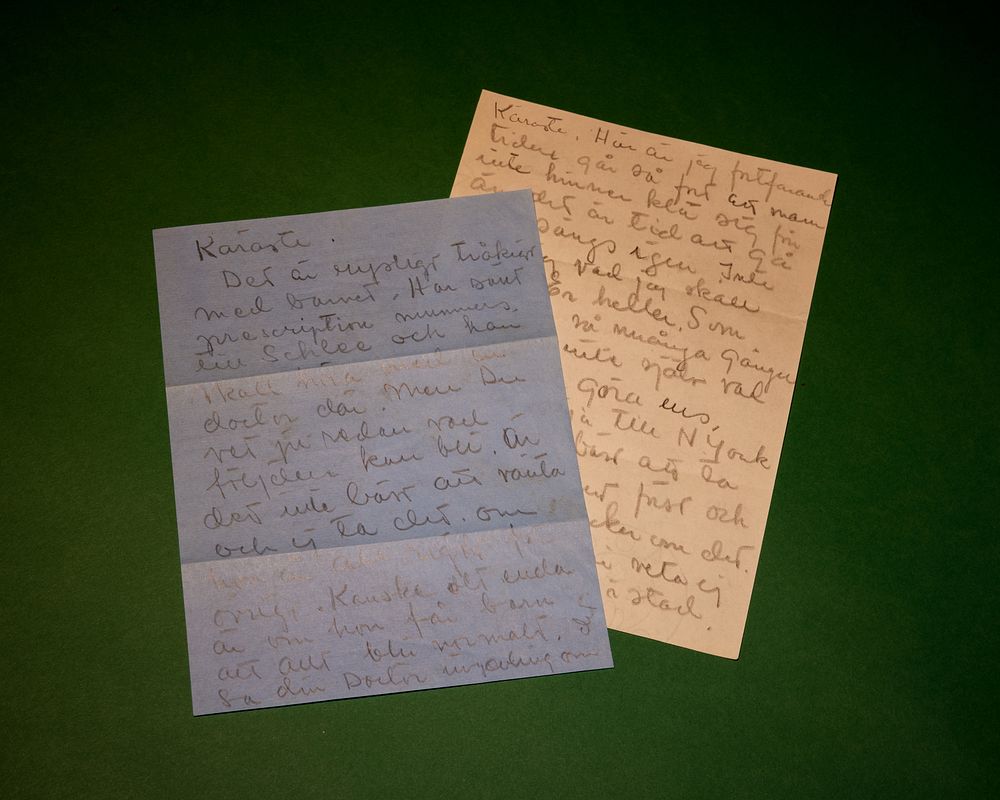 Käraste.
Det är rysligt tråkigt
med barnet. Har sänt
prescription nummers.
till Schlee och han
skall
doctor där. Men Du
vet ju redan vad
följden kan bli. Är
det inte bäst att vänta
och ej ta det. om
hon är all right för
övrigt. Kanske det enda
är om hon får barn
att allt blir normalt.
Sa din Doctor ingenting om
Käraste. Här är jag fortfarande
tiden går så fort att man
inte hinner klä sig för
än det är tid att gå
sängs igen. Inte
vad jag skall
för heller. Som
så många gånger
inte själv vad
göra ens,
till N York
bäst att ta
först och
om det.
veta ej
stad.